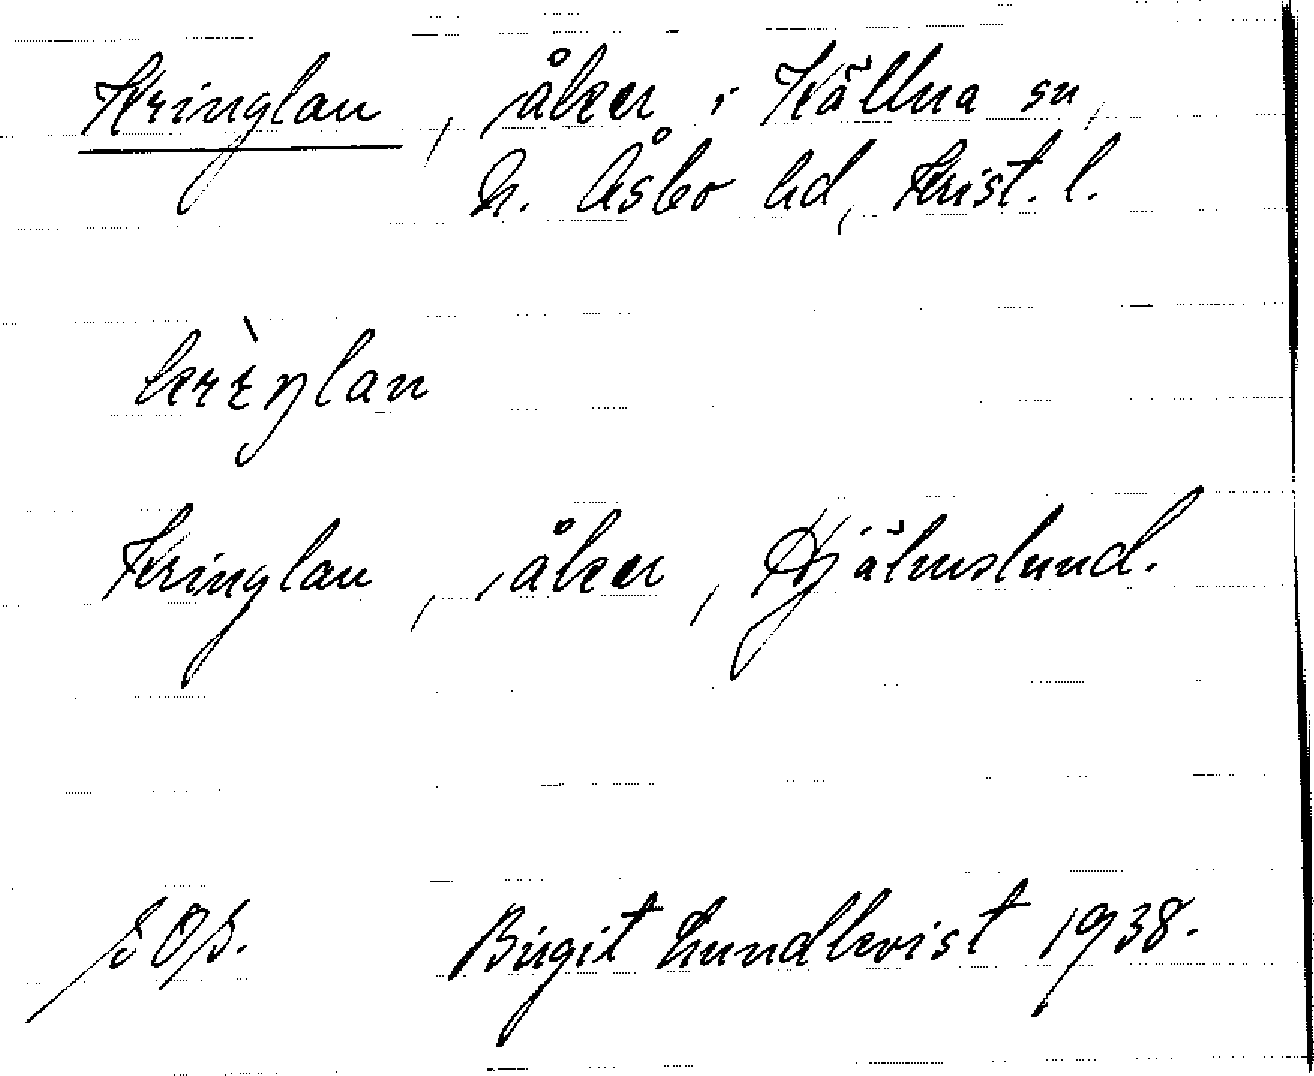 Kringlan, åker i Källna sn,
N. Åsbo hd, Krist. l.
krɩ̀ŋlan
Kringlan, åker, Hjälmslund.
Birgit Lundkvist 1938.